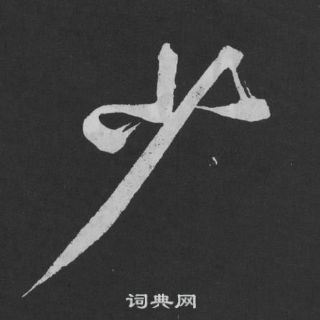 少
词典网